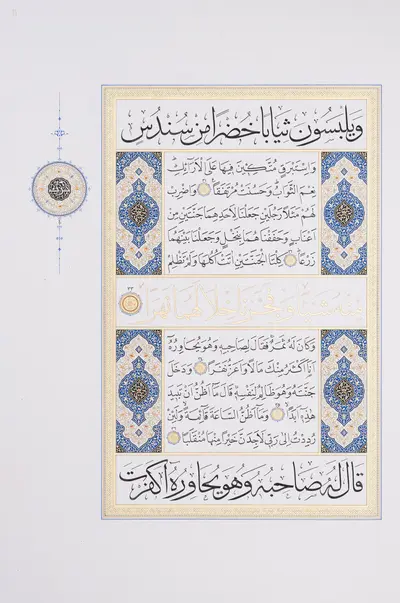 وَيَلْبَسُونَ ثِيَابًا خُضْرًا مِنْ سُنْدُسٍ
وَاِسْتَبْرَقٍ مُتَّكِئِينَ فِيهَا عَلَى الْاَرَائِكِ
نِعْمَ الثَّوَابُ وَحَسُنَتْ مُرْتَفَقًا وَاضْرِبْ
لَهُمْ مَثَلًا رَجُلَيْنِ جَعَلْنَا لِاَحَدِهِمَا جَنَّتَيْنِ مِنْ
اَعْنَابٍ وَحَفَفْنَاهُمَا بِنَخْلٍ وَجَعَلْنَا بَيْنَهُمَا
زَرْعًا كِلْتَا الْجَنَّتَيْنِ اٰتَتْ اُكُلَهَا وَلَمْ تَظْلِمْ
مِنْهُ شَيْئًا وَفَجَّرْنَا خِلَالَهُمَا نَهَرًا ٣٣
وَكَانَ لَهُ ثَمَرٌ فَقَالَ لِصَاحِبِهِ وَهُوَ يُحَاوِرُهُ
اَنَا اَكْثَرُ مِنْكَ مَالًا وَاَعَزُّ نَفَرًا وَدَخَلَ
جَنَّتَهُ وَهُوَ ظَالِمٌ لِنَفْسِهِ قَالَ مَا اَظُنُّ اَنْ تَبِيدَ
هٰذِهِ اَبَدًا وَمَا اَظُنُّ السَّاعَةَ قَائِمَةً وَلَئِنْ
رُدِدْتُ اِلٰى رَبِّي لَاَجِدَنَّ خَيْرًا مِنْهَا مُنْقَلَبًا
قَالَ لَهُ صَاحِبُهُ وَهُوَ يُحَاوِرُهُ اَكَفَرْتَ